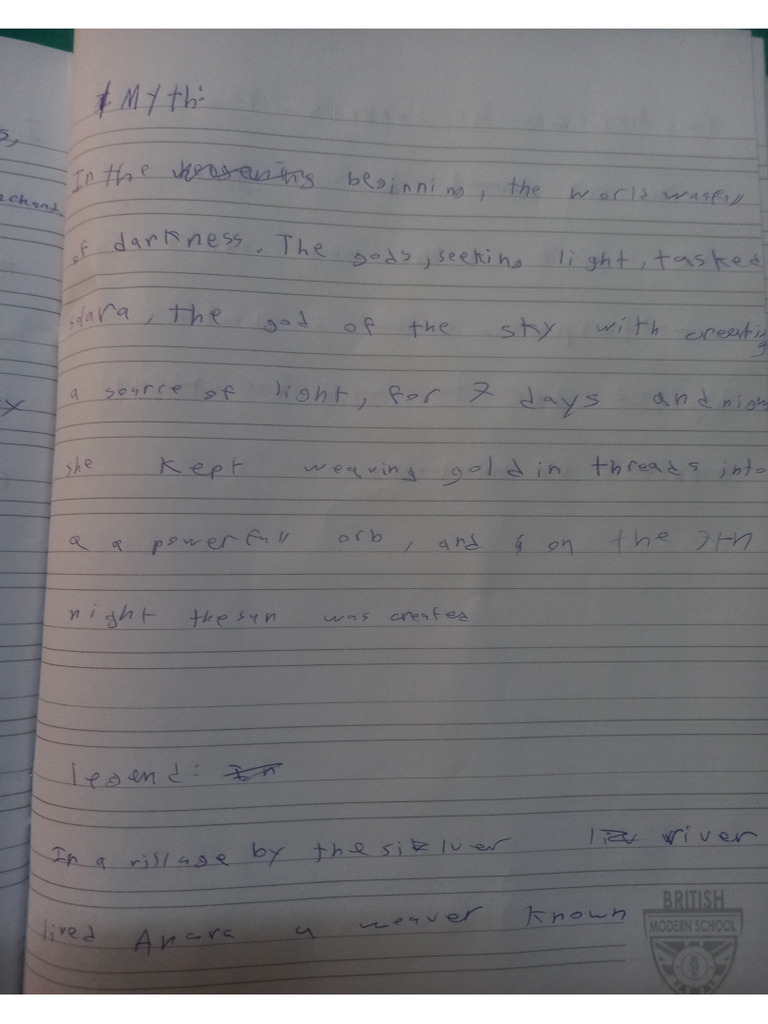 Myth:
In the beginning, the world was full
of darkness. The gods, seeking light, tasked
the god of the sky with creating
a source of light, for 7 days and nigh
she kept weaving goldin threads into
a a powerfull orb, and on the 7th
night the sun was created
legend: In
In a village by the silver river
lived Anara a weaver known
BRITISH
MODERN SCHOOL